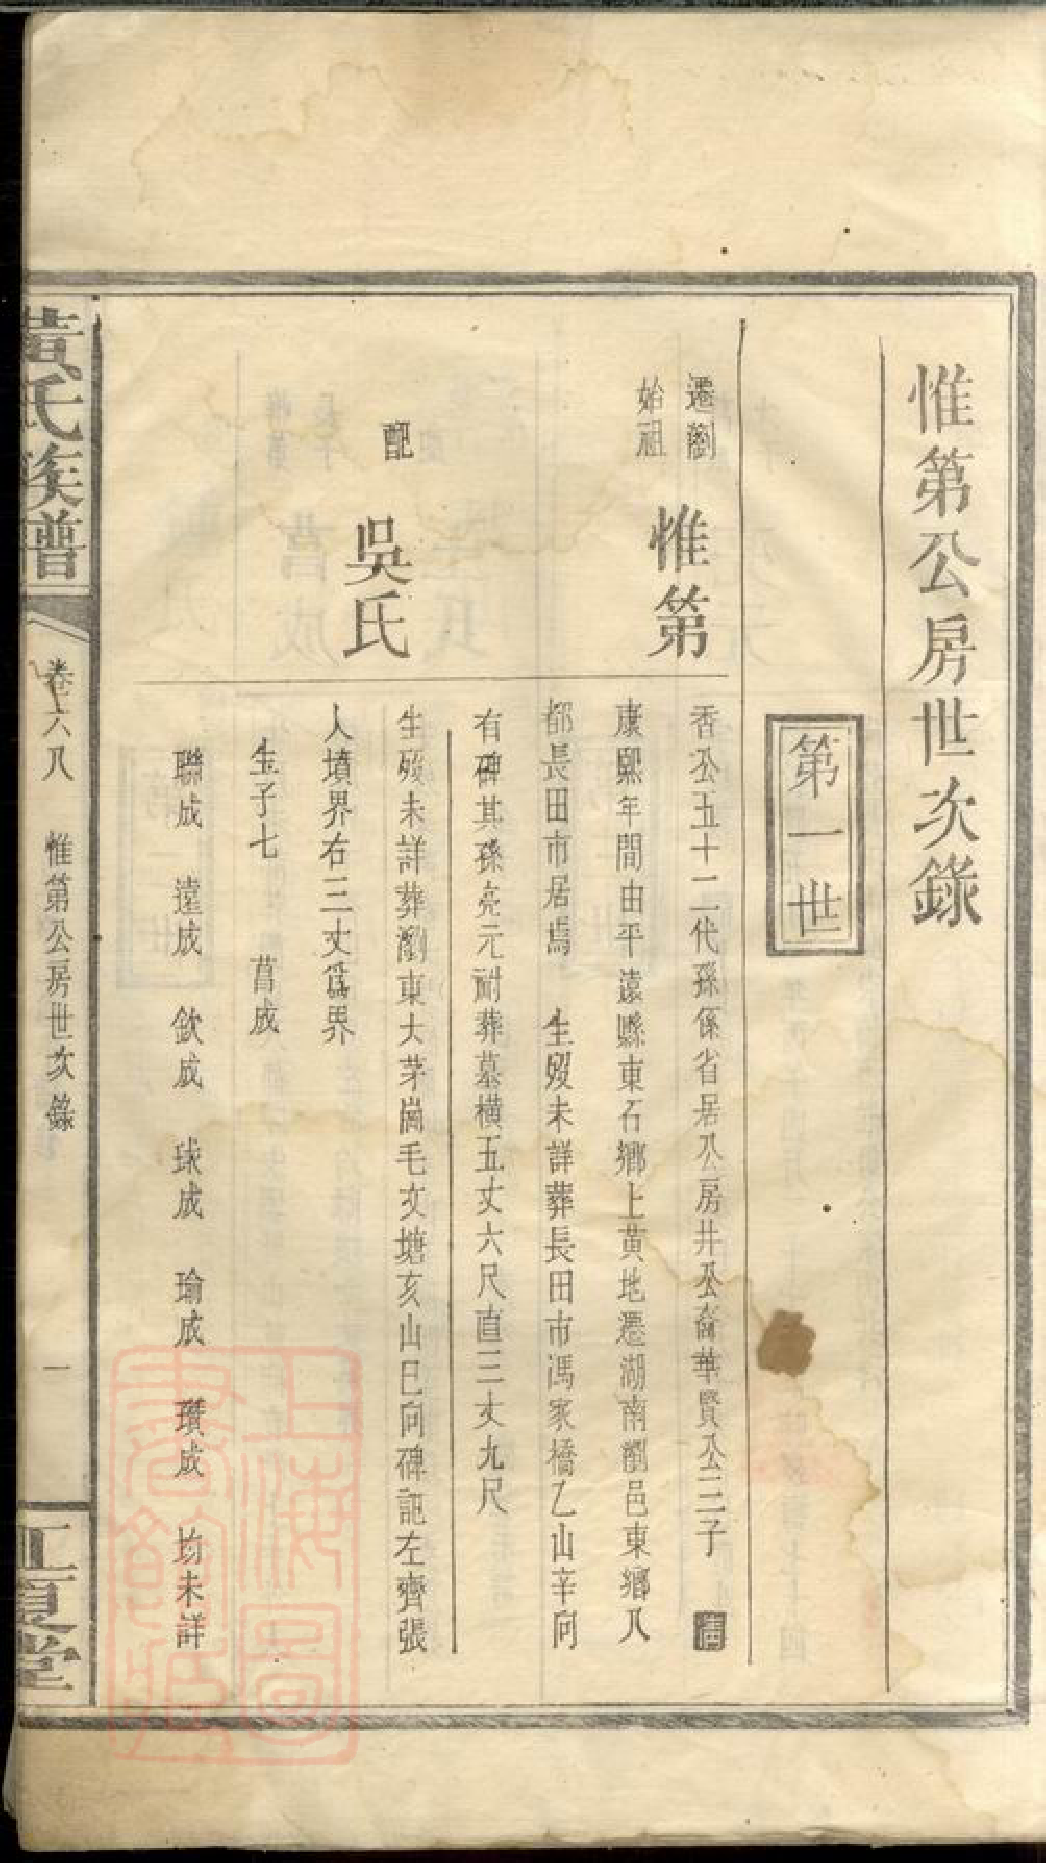 惟第公房世次錄
第一世
遷瀏
始祖
惟第
香公五十二代孫係省居公房井公裔華賢公三子
康熙年間由平遠縣東石鄉上黃地遷湖南瀏邑東鄉八
都長田市居焉 生歿未詳葬長田市馮家橋乙山辛向
有碑其孫亮元祔葬墓橫五丈六尺直三丈九尺
配
吳氏
生歿未詳葬瀏東大茅崗毛文塘亥山巳向碑記左齊張
人墳界右三丈爲界
生子七 菖成
聯成 遠成 欽成 球成 瑜成 瓚成 均未詳
黃氏族譜
卷六八 惟第公房世次錄
一
江夏堂
上海圖書館藏